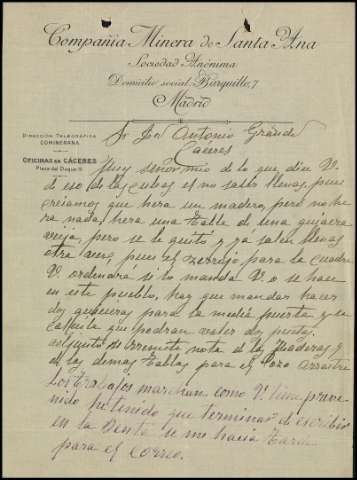 Compañia Minera de Santa Ana
Sociedad Anónima
Domicilio social: Barquillo, 7
Madrid
DIRECCIÓN TELEGRÁFICA
COMINERANA
OFICINAS EN CÁCERES
Plaza del Duque, 11
Sr Don Antonio Grande
Caceres
Muy señor mio de lo que dice V.
d eso de las cubas es no salir llenas, pues
creiamos que hera un madero, pero no he
ra nada hera una tabla de una
vieja, pero se le quitó y ya salen llenas
otra vez, pues el zerrojo para la cuadra
V. ordenará si lo manda V. o se hace
en este pueblo, hay que mandar hacer
dos para la media puerta y se
calcula que podran valer dos pesetas.
adjunto se rremite nota de las Maderas y
de las demas tablas para el Pozo arrastre
los trabajos marchan como V. tiene preve
nido he tenido que terminar de escribir
en la Venta se me hacia tarde
para el Correo.